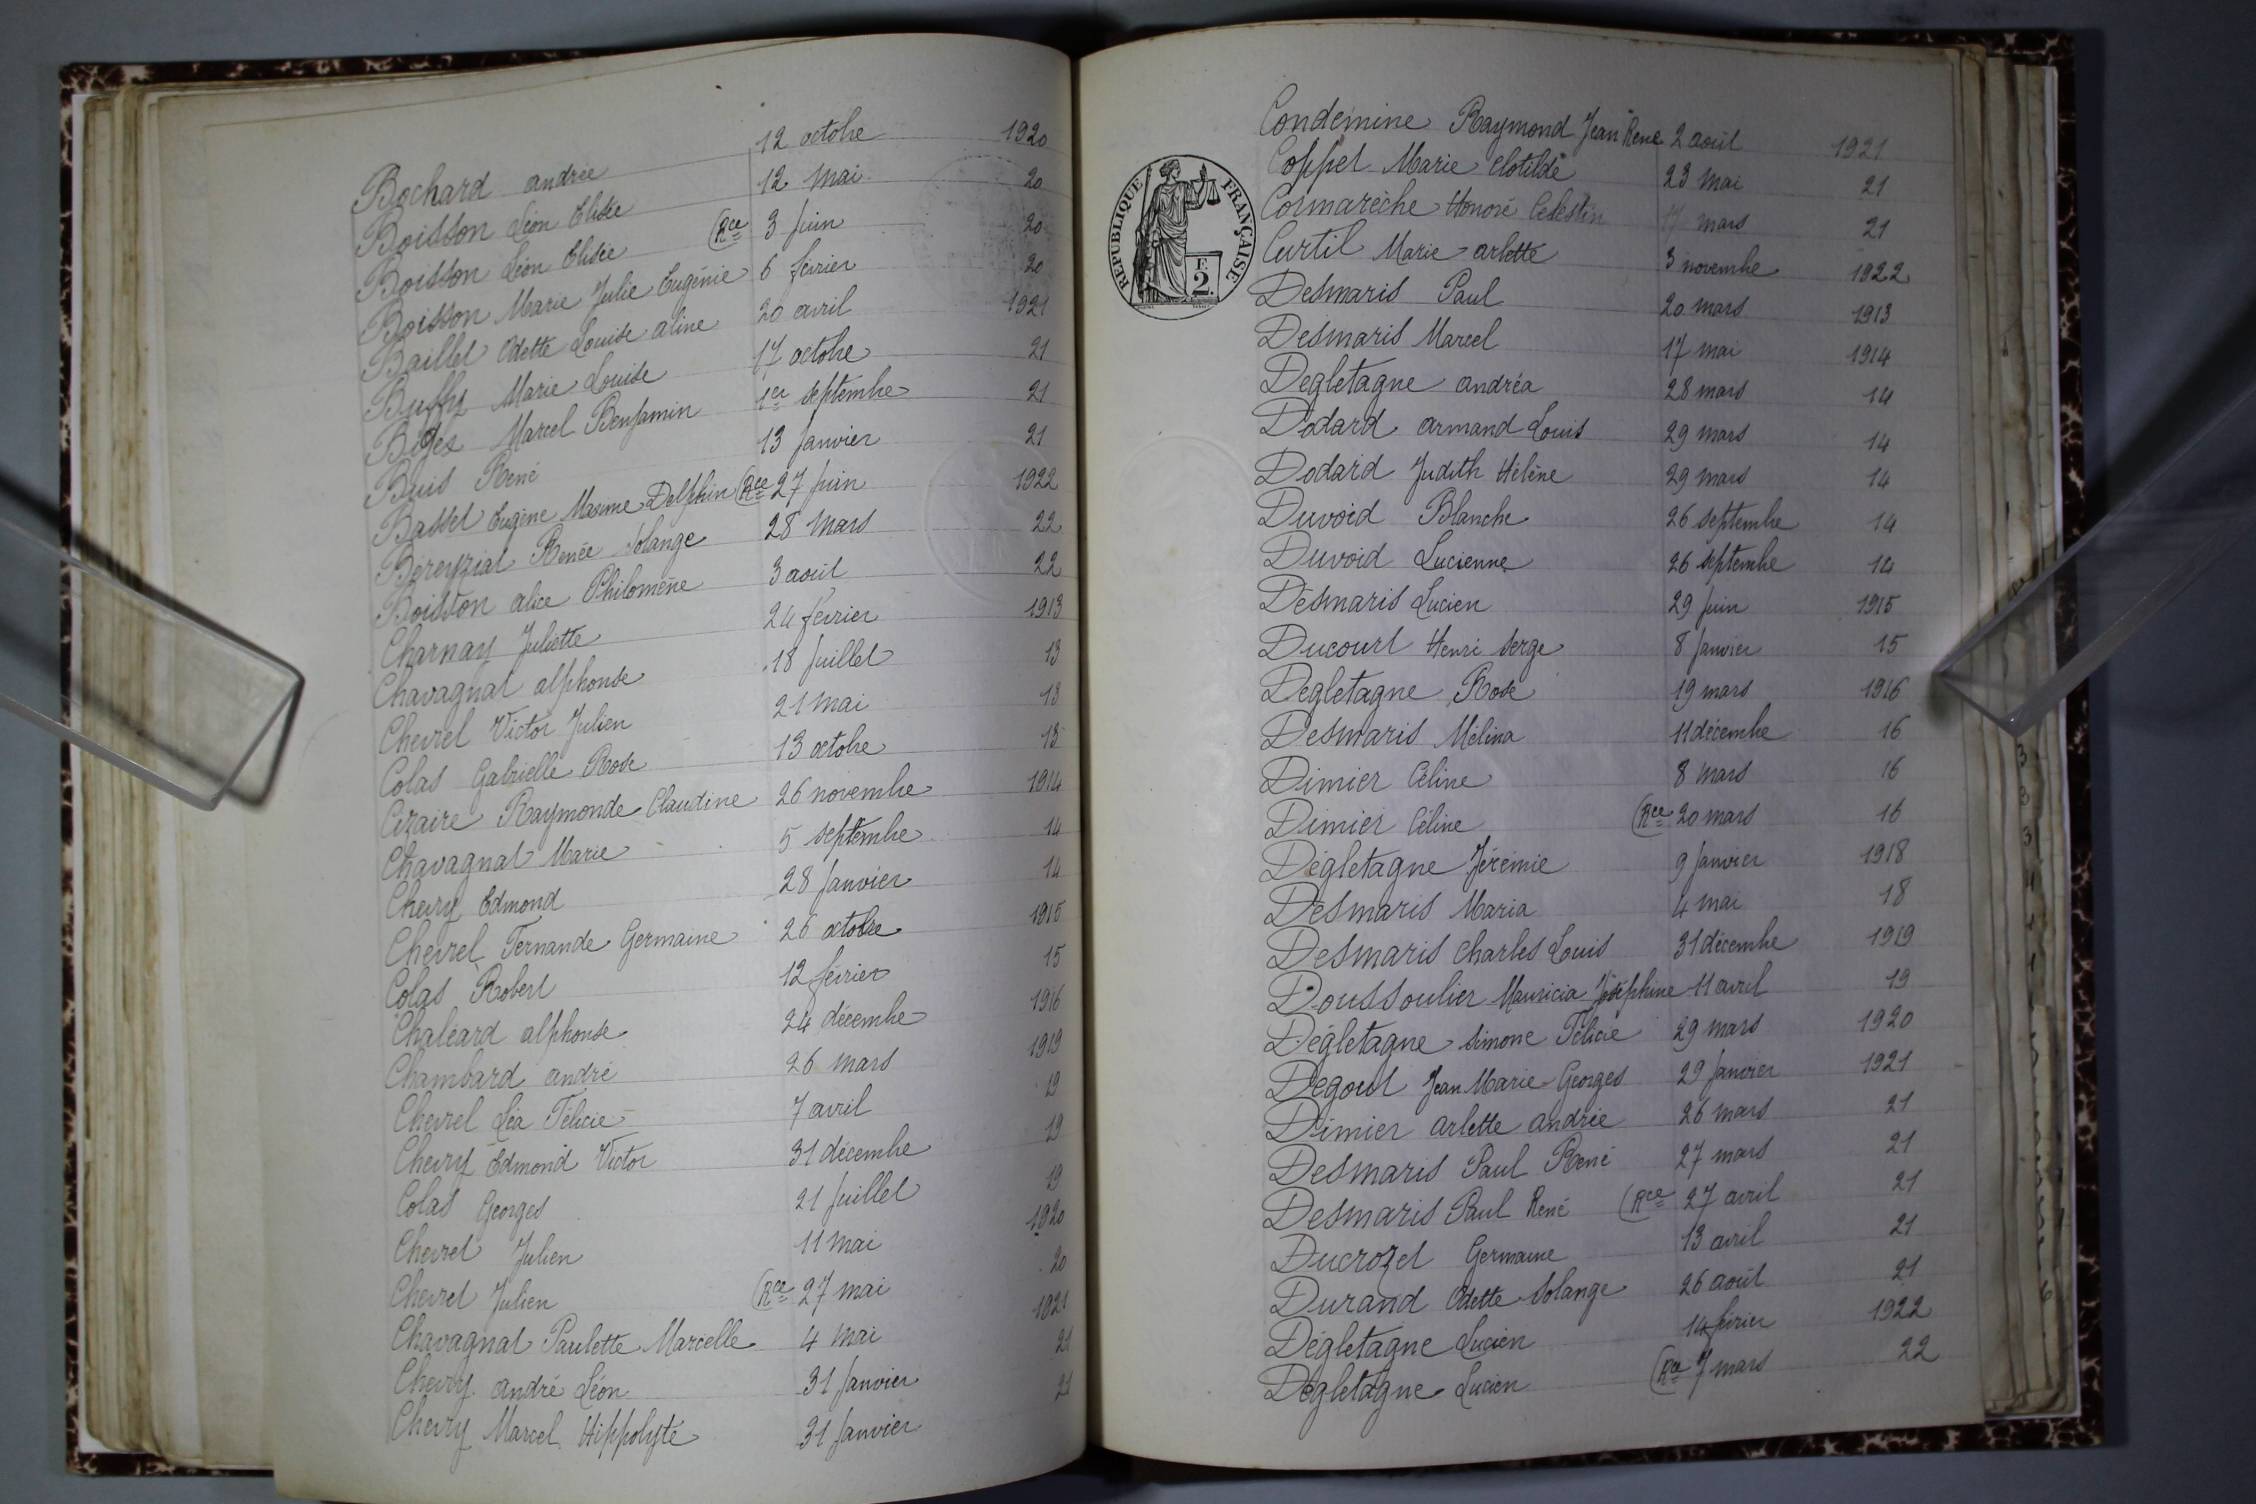 Bochard andrée 12 octobre 1920
Boisson Léon Elisée 12 mai 20
Boisson Léon Elisée (Rce 3 juin 20
Boisson Marie Julie Eugénie 6 février 20
Baillet Odette Louise aline 20 avril 1921
Buffy Marie Louise 17 octobre 21
Marcel Benjamin 1er septembre 21
Buis René 13 janvier 21
Basset Eugène Maxime Delphin (Rce 27 juin 1922
Béreyziat Renée Solange 28 mars 22
Boisson alice Philomène 3 août 22
Charnay Juliette 24 février 1913
Chavagnat alphonse 18 juillet 13
Chevrel Victor Julien 21 mai 13
Colas Gabrielle Rose 13 octobre 13
Cizaire Raymonde Claudine 26 novembre 1914
Chavagnat Marie 5 septembre 14
Chevry Edmond 28 janvier 14
Chevrel Fernande Germaine 26 octobre 1915
Colas Robert 12 février 15
Chaléard alphonse 24 décembre 1916
Chambard andré 26 mars 1919
Chevrel Léa Félicie 7 avril 19
Chevry Edmond Victor 31 décembre 19
Colas Georges 21 juillet 19
Chevrel Julien 11 mai 1920
Chevrel Julien (Rce 27 mai 20
Chavagnat Paulette Marcelle 4 mai 1921
Chevry andré Léon 31 janvier 21
Chevry Marcel Hippolyte 31 janvier 21
RÉPUBLIQUE FRANÇAISE
F.
2.
Condemine Raymond Jean René 2 août 1921
Coppet Marie Clotilde 23 mai 21
Cormarèche Honoré Célestin 17 mars 21
Curtil Marie arlette 3 novembre 1922
Desmaris Paul 20 mars 1913
Desmaris Marcel 17 mai 1914
Dégletagne andréa 28 mars 14
Dodard armand Louis 29 mars 14
Dodard Judith Hélène 29 mars 14
Duvoid Blanche 26 septembre 14
Duvoid Lucienne 26 septembre 14
Desmaris Lucien 29 juin 1915
Ducourt Henri Serge 8 janvier 15
Dégletagne Rose 19 mars 1916
Desmaris Mélina 11 décembre 16
Dimier Céline 8 mars 16
Dimier Céline (Rce 20 mars 16
Dégletagne Jérémie 9 janvier 1918
Desmaris Maria 4 mai 18
Desmaris Charles Louis 31 décembre 1919
Doussoulier Mauricia Joséphine 11 avril 19
Dégletagne Simone Félicie 29 mars 1920
Degout Jean Marie Georges 29 janvier 1921
Dimier arlette andrée 26 mars 21
Desmaris Paul René 27 mars 21
Desmaris Paul René (Rce 27 avril 21
Ducrozet Germaine 13 avril 21
Durand Odette Solange 26 août 21
Dégletagne Lucien 14 février 1922
Dégletagne Lucien (Rce 7 mars 22